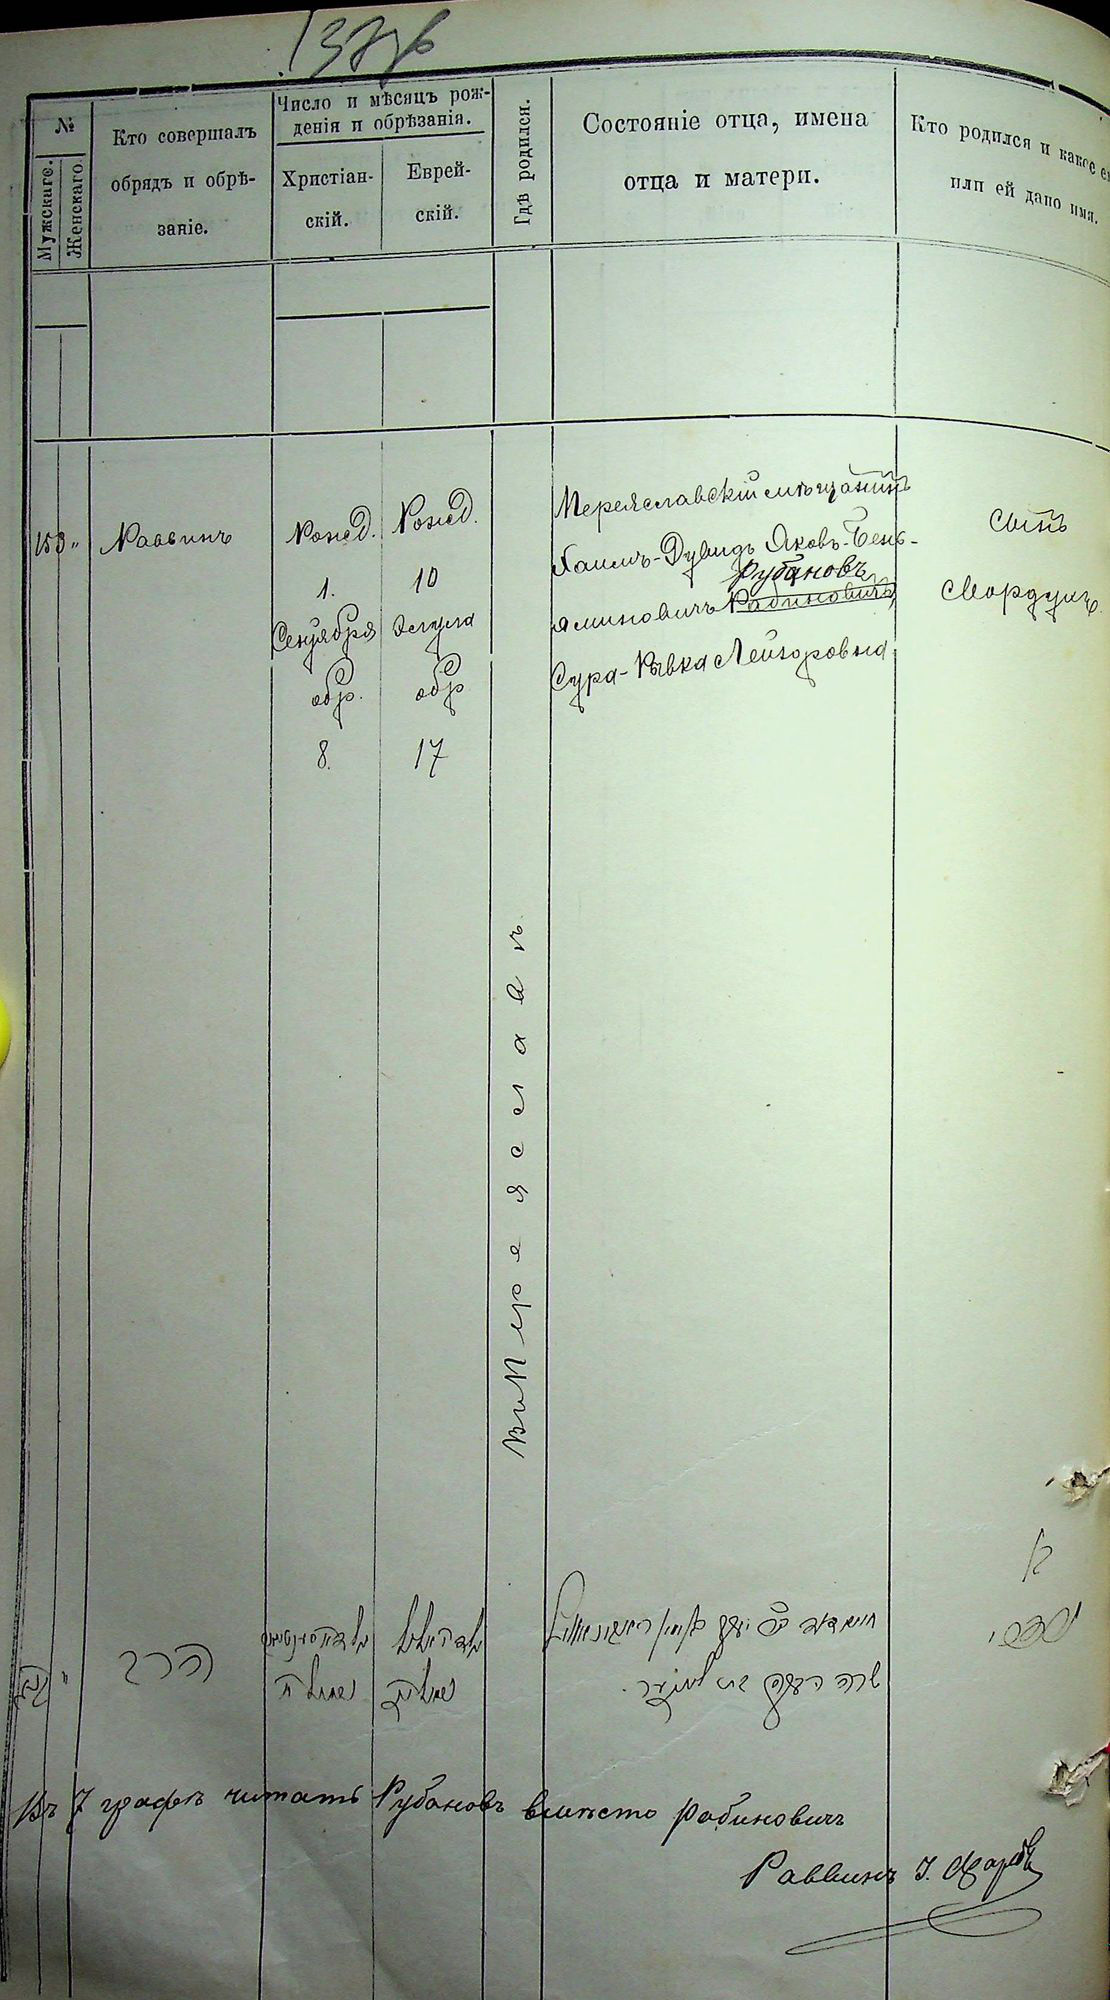 №
Мужскаго.
Женскаго.
Кто совершалъ
обрядъ и обрѣ-
заніе.
Число и мѣсяцъ рож-
денія и обрѣзанія.
Христіан-
скій.
Еврей-
скій.
Гдѣ родился.
Состояніе отца, имена
отца и матери.
Кто родился и какое ем
или ей дано имя.
153 "
Раввинъ
Рожд.
1.
Сентября
обр.
8.
Рожд.
10
Элула
обр
17
въ Переяславѣ
Переяславскій мѣщанинъ
Хаимъ-Дувидъ Яковъ-Бень-
Рубановъ
яминовичъ Рабиновичъ,
Сура-Ривка Лейзоровна
сынъ
Мордухъ.
בן
מרדכי
הרב
שרה רבקה בת
Въ 7 графѣ читать Рубановъ вмѣсто Рабиновичъ
Раввинъ